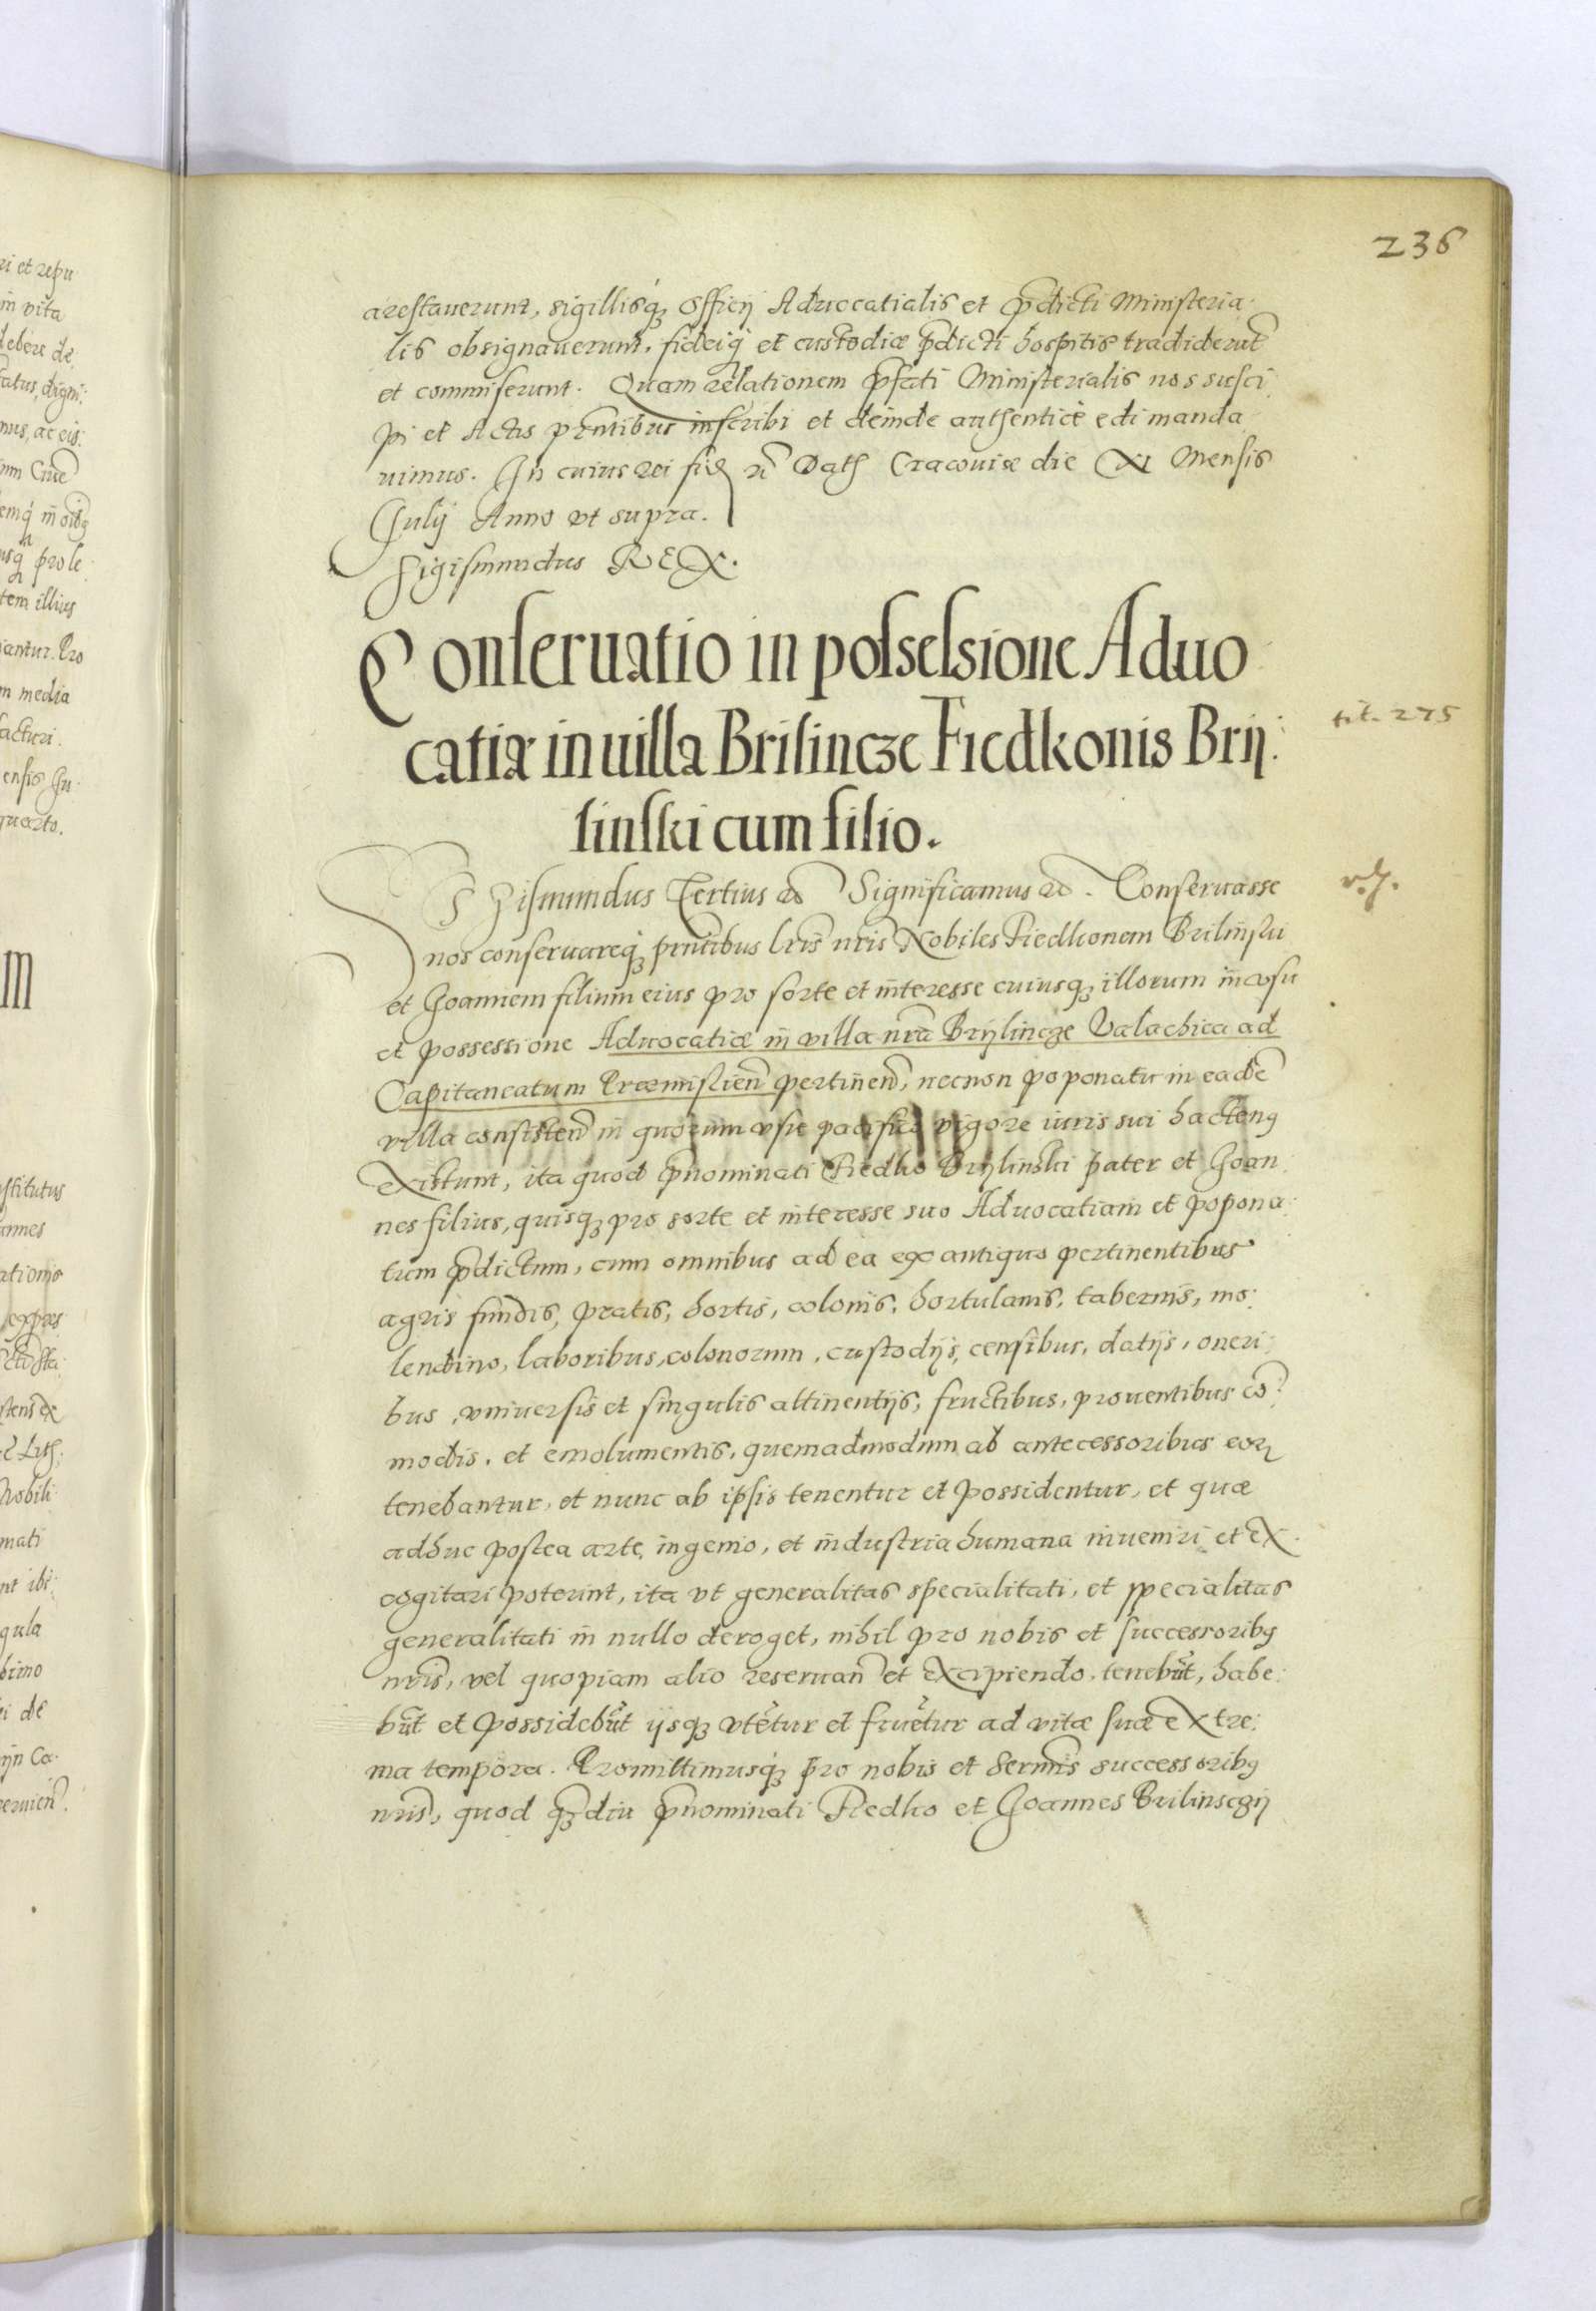 236
arestauerunt, sigillisq́ꝫ Officij Aduocatialis et p̃dicti Ministeria
lis obsignauerunt, fideiq́ et custodiæ p̃dicti hospitis tradiderũt
et commiserunt. Quam relationem p̃fati Ministerialis nos susci
pi et Actis pr̃ntibus inscribi et deinde authenticè edi manda
uimus. In cuius rei fidẽ Dat̃ Cracouiæ die XI Mensis
Julij Anno vt supra.
Sigismundus REX.
Conseruatio in possessione Aduo
catiæ in uilla Brilincze Fiedkonis Brij:
linski cum filio.
tit. 275
Sigismundus Tertius Significamus. Conseruasse
nos conseruareq́ꝫ pr̃ntibus lr̃is nr̃is Nobiles Fiedkonem Brilinski
et Joannem filium eius pro sorte et interesse cuiusqꝫ illorum in vsu
et possessione Aduocatiæ in villa nr̃a Brijlincze Valachica ad
Capitaneatum Præmislien̄ pertinen̄, necnon poponatu in eadẽ
villa consisten̄ in quorum vsu pacifico vigore iuris sui hacteng
existunt, ita quod p̃nominati Fiedko Brijlinski pater et Joan:
nes filius, quisqꝫ pro sorte et interesse suo Aduocatiam et popona:
tum p̃dictum, cum omnibus ad ea ex antiquo pertinentibus
agris fundis, pratis, hortis, colonis, hortulanis, tabernis, mo:
lendino, laboribus, colonorum, custodijs, censibus, datijs, oneri:
bus, vniuersis et singulis attinentijs, fructibus, prouentibus cõ:
modis, et emolumentis, quemadmodum ab antecessoribus eoꝝ
tenebantur, et nunc ab ipsis tenentur et possidentur, et quæ
adhuc postea arte, ingenio, et industria humana inueniri et ex.
cogitari poterunt, ita vt generalitas specialitati, et specialitas
generalitati in nullo deroget, nihil pro nobis et successoribg
nr̃is, vel quopiam alio reseruan̄ et excipiendo, tenebũt, habe:
bũt et possidebũt ijsqꝫ vtẽtur et fruẽtur ad vitæ suæ extre:
ma tempora. Promittimusq́ꝫ pro nobis et Sermis successoribg
nr̃is, quod qꝫdiu p̃nominati Fiedko et Joannes Brilinsczij